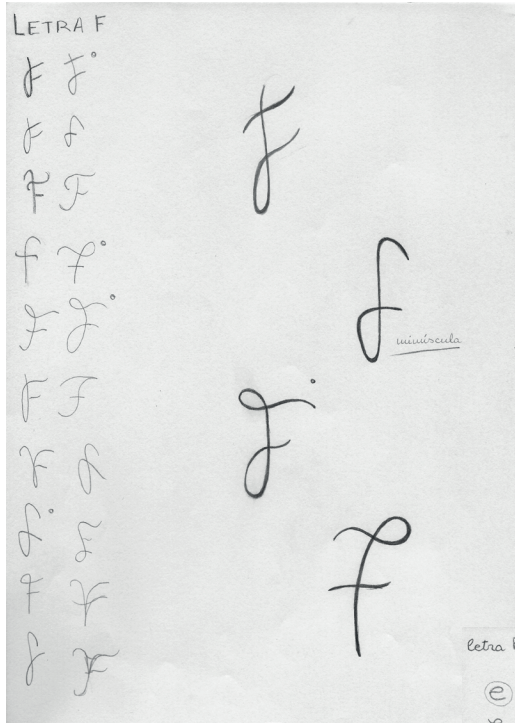 LETRA F
F F
F f
F F
f F
F F
F F
F F
F F
F F
f F
F
f
minúscula
F
F
letra
e